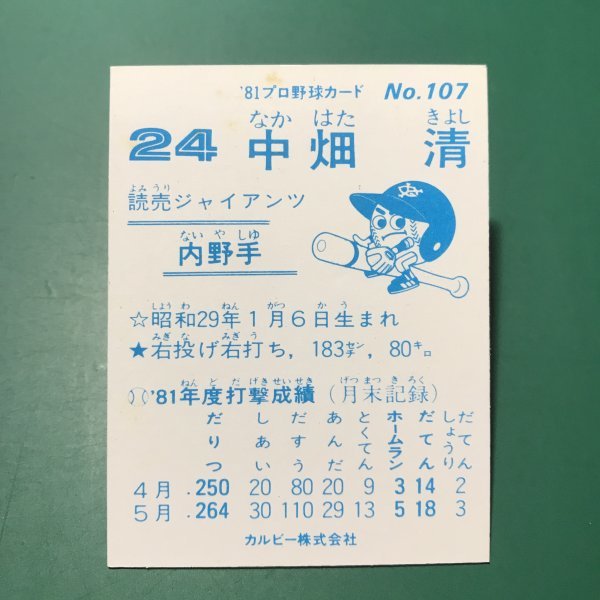 '81プロ野球カード No.107
なか はた きよし
24 中畑 清
よみうり
読売ジャイアンツ
ない や しゆ
内野手
しよう わ ねん がつ か う
☆昭和29年1月6日生まれ
みぎ な みぎ う
★右投げ右打ち，183センチ，80キロ
ねん ど だ げき せい せき げつ まつ き ろく
'81年度打撃成績（月末記録）
だりつ しあい だすう あんだ とくてん ホームラン だてん しょうりだてん
4月 .250 20 80 20 9 3 14 2
5月 .264 30 110 29 13 5 18 3
カルビー株式会社